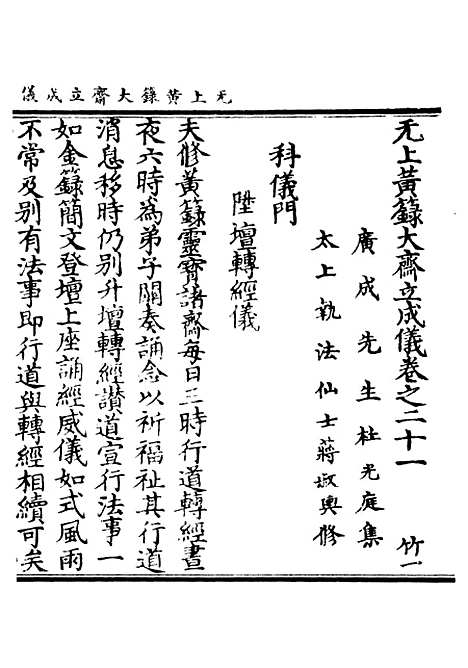 无上黄籙大齋立成儀
无上黃籙大齋立成儀卷之二十一　竹一
廣成先生杜光庭集
太上執法仙士蔣叔輿修
科儀門
陞壇轉經儀
夫修黃籙靈寳諸齋每日三時行道轉經晝
夜六時為弟子關奏誦念以祈福祉其行道
消息移時仍别升壇轉經讃道宣行法事一
如金籙簡文登壇上座誦經威儀如式風雨
不常及别有法事即行道與轉經相續可矣